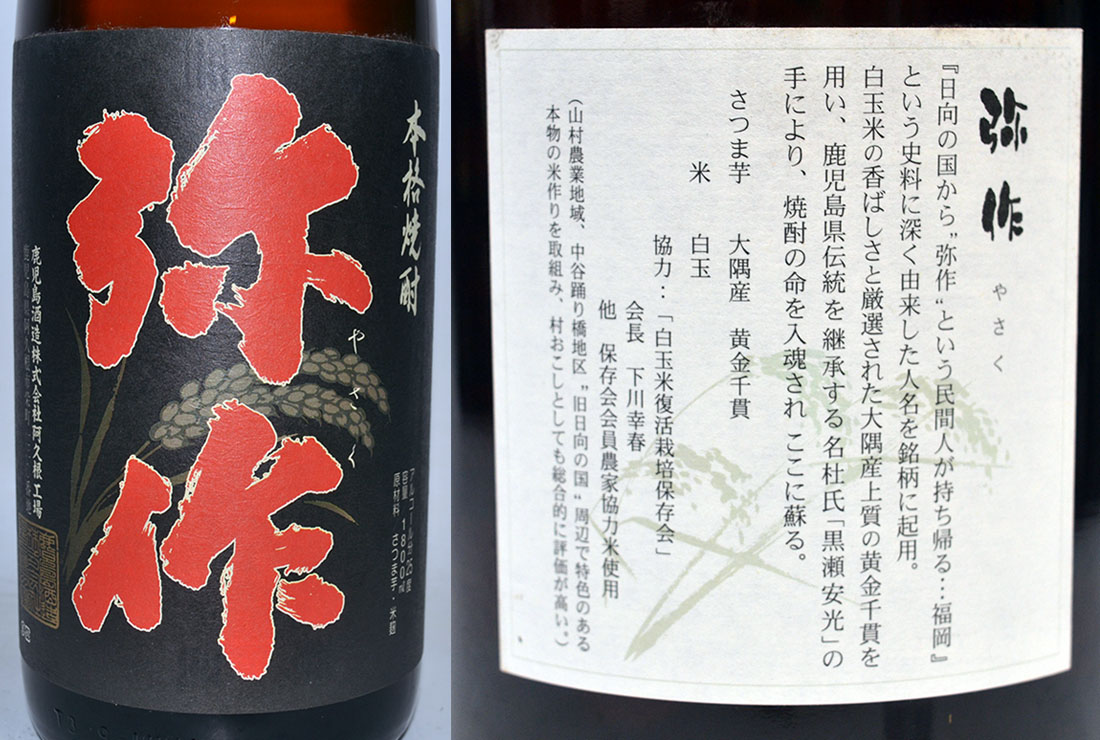 本格焼酎
弥作
やさく
アルコール分25度
容量1800ml
原材料 さつま芋・米麹
鹿児島酒造株式会社阿久根工場
弥作
やさく
『日向の国から〝弥作〟という民間人が持ち帰る…福岡』
という史料に深く由来した人名を銘柄に起用。
白玉米の香ばしさと厳選された大隅産上質の黄金千貫を
用い、鹿児島県伝統を継承する名杜氏「黒瀬安光」の
手により、焼酎の命を入魂され ここに蘇る。
さつま芋 大隅産 黄金千貫
米 白玉
協力：「白玉米復活栽培保存会」
会長 下川幸春
他 保存会会員農家協力米使用
（山村農業地域、中谷踊り橋地区〝旧日向の国〟周辺で特色のある
本物の米作りを取組み、村おこしとしても総合的に評価が高い。）